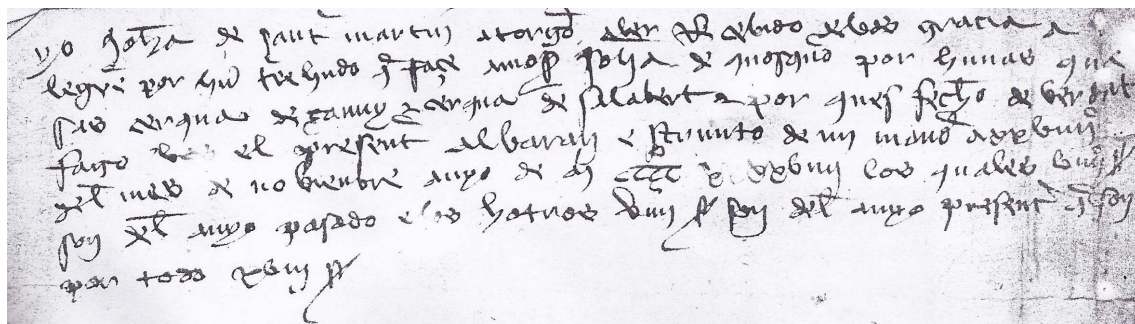 yo Joha de sant martin atorgo aber Recebido de vos gracia a
legre por hun trehudo q façe a mosen Joha de mosqueo por hunas que
sas cerqua de Cauuy cerqua de salabert por ques fecho de verdat
fago vos el present albaran escriuto de mi mano a xxviiiº
del mes de nobienbre anyo de M CCCC xxviii los quales viiii ss
son del anyo pasado e los hotros viiii ss son del anyo present q son
por todo xviii ss